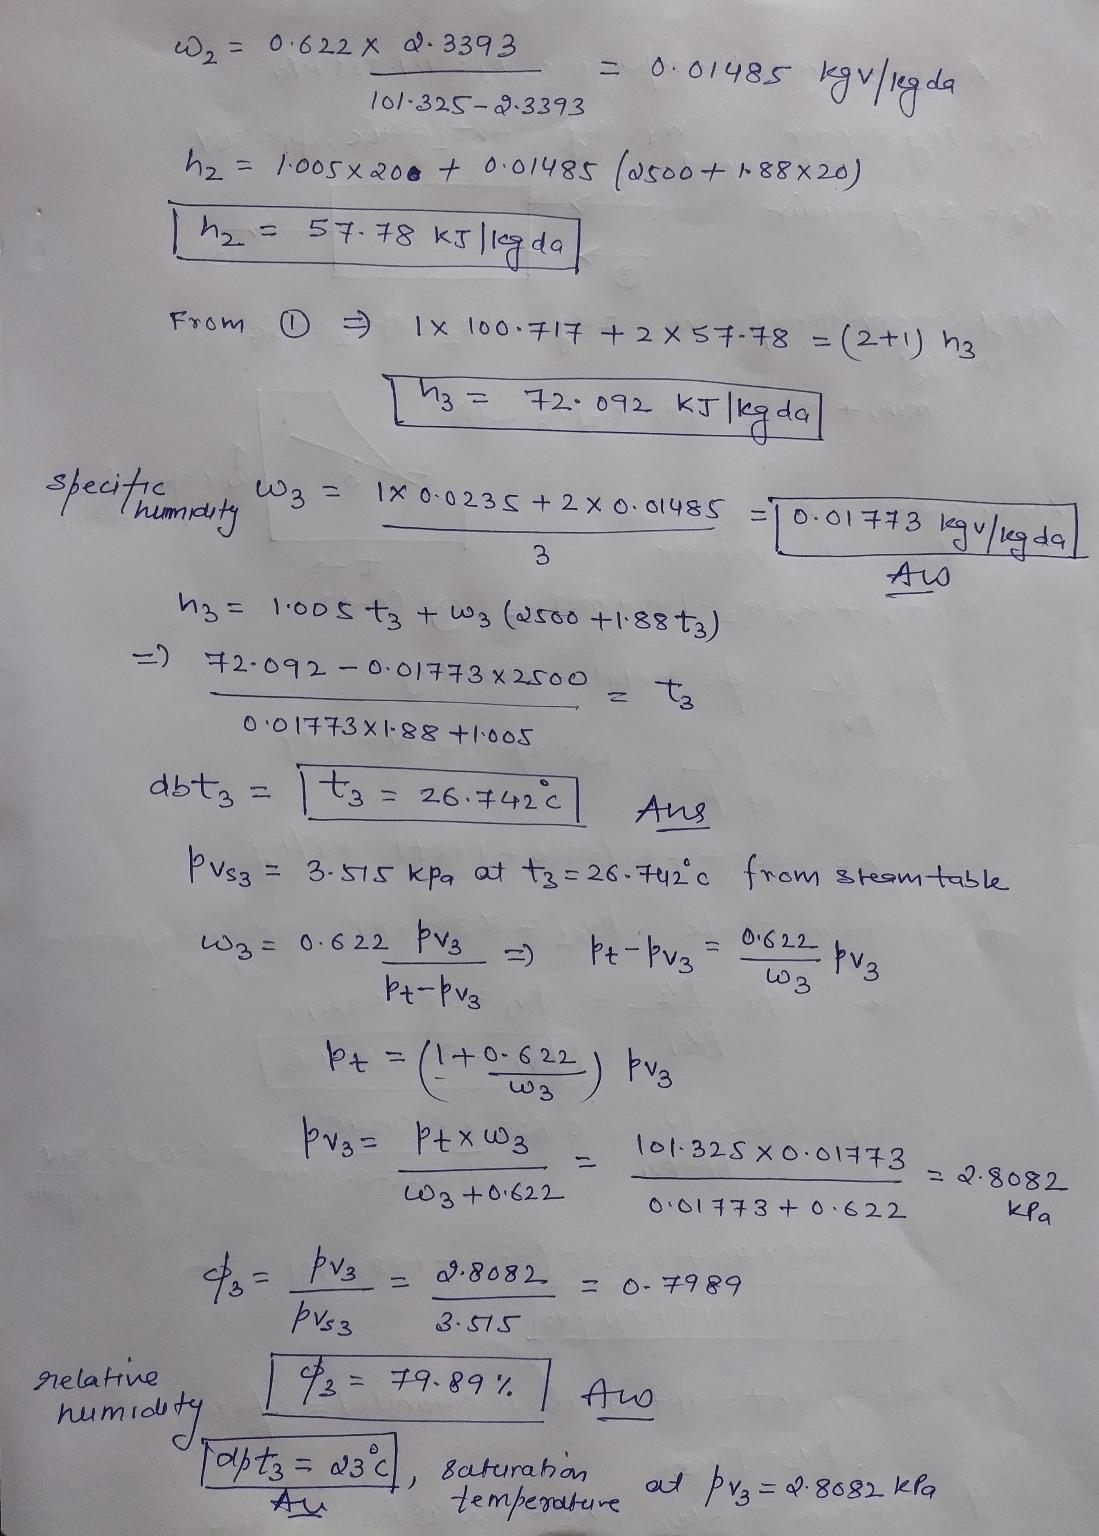 ω₂ = 0.622 × 2.3393 / 101.325 - 2.3393 = 0.01485 kgv/kgda
h₂ = 1.005 × 20 + 0.01485 (2500 + 1.88 × 20)
h₂ = 57.78 KJ/kgda
From ① ⇒ 1 × 100.717 + 2 × 57.78 = (2+1) h₃
h₃ = 72.092 KJ/kgda
specific humidity ω₃ = 1 × 0.0235 + 2 × 0.01485 / 3 = 0.01773 kgv/kgda
Ans
h₃ = 1.005 t₃ + ω₃ (2500 + 1.88 t₃)
⇒ 72.092 - 0.01773 × 2500 / 0.01773 × 1.88 + 1.005 = t₃
dbt₃ = t₃ = 26.742°c Ans
Pvs₃ = 3.515 kpa at t₃ = 26.742°c from steam table
ω₃ = 0.622 Pv₃ / Pt - Pv₃ ⇒ Pt - Pv₃ = 0.622 / ω₃ Pv₃
Pt = (1 + 0.622 / ω₃) Pv₃
Pv₃ = Pt × ω₃ / ω₃ + 0.622 = 101.325 × 0.01773 / 0.01773 + 0.622 = 2.8082 kPa
φ₃ = Pv₃ / Pvs₃ = 2.8082 / 3.515 = 0.7989
relative humidity φ₃ = 79.89 % Ans
dpt₃ = 23°c, saturation temperature at Pv₃ = 2.8082 kPa
An